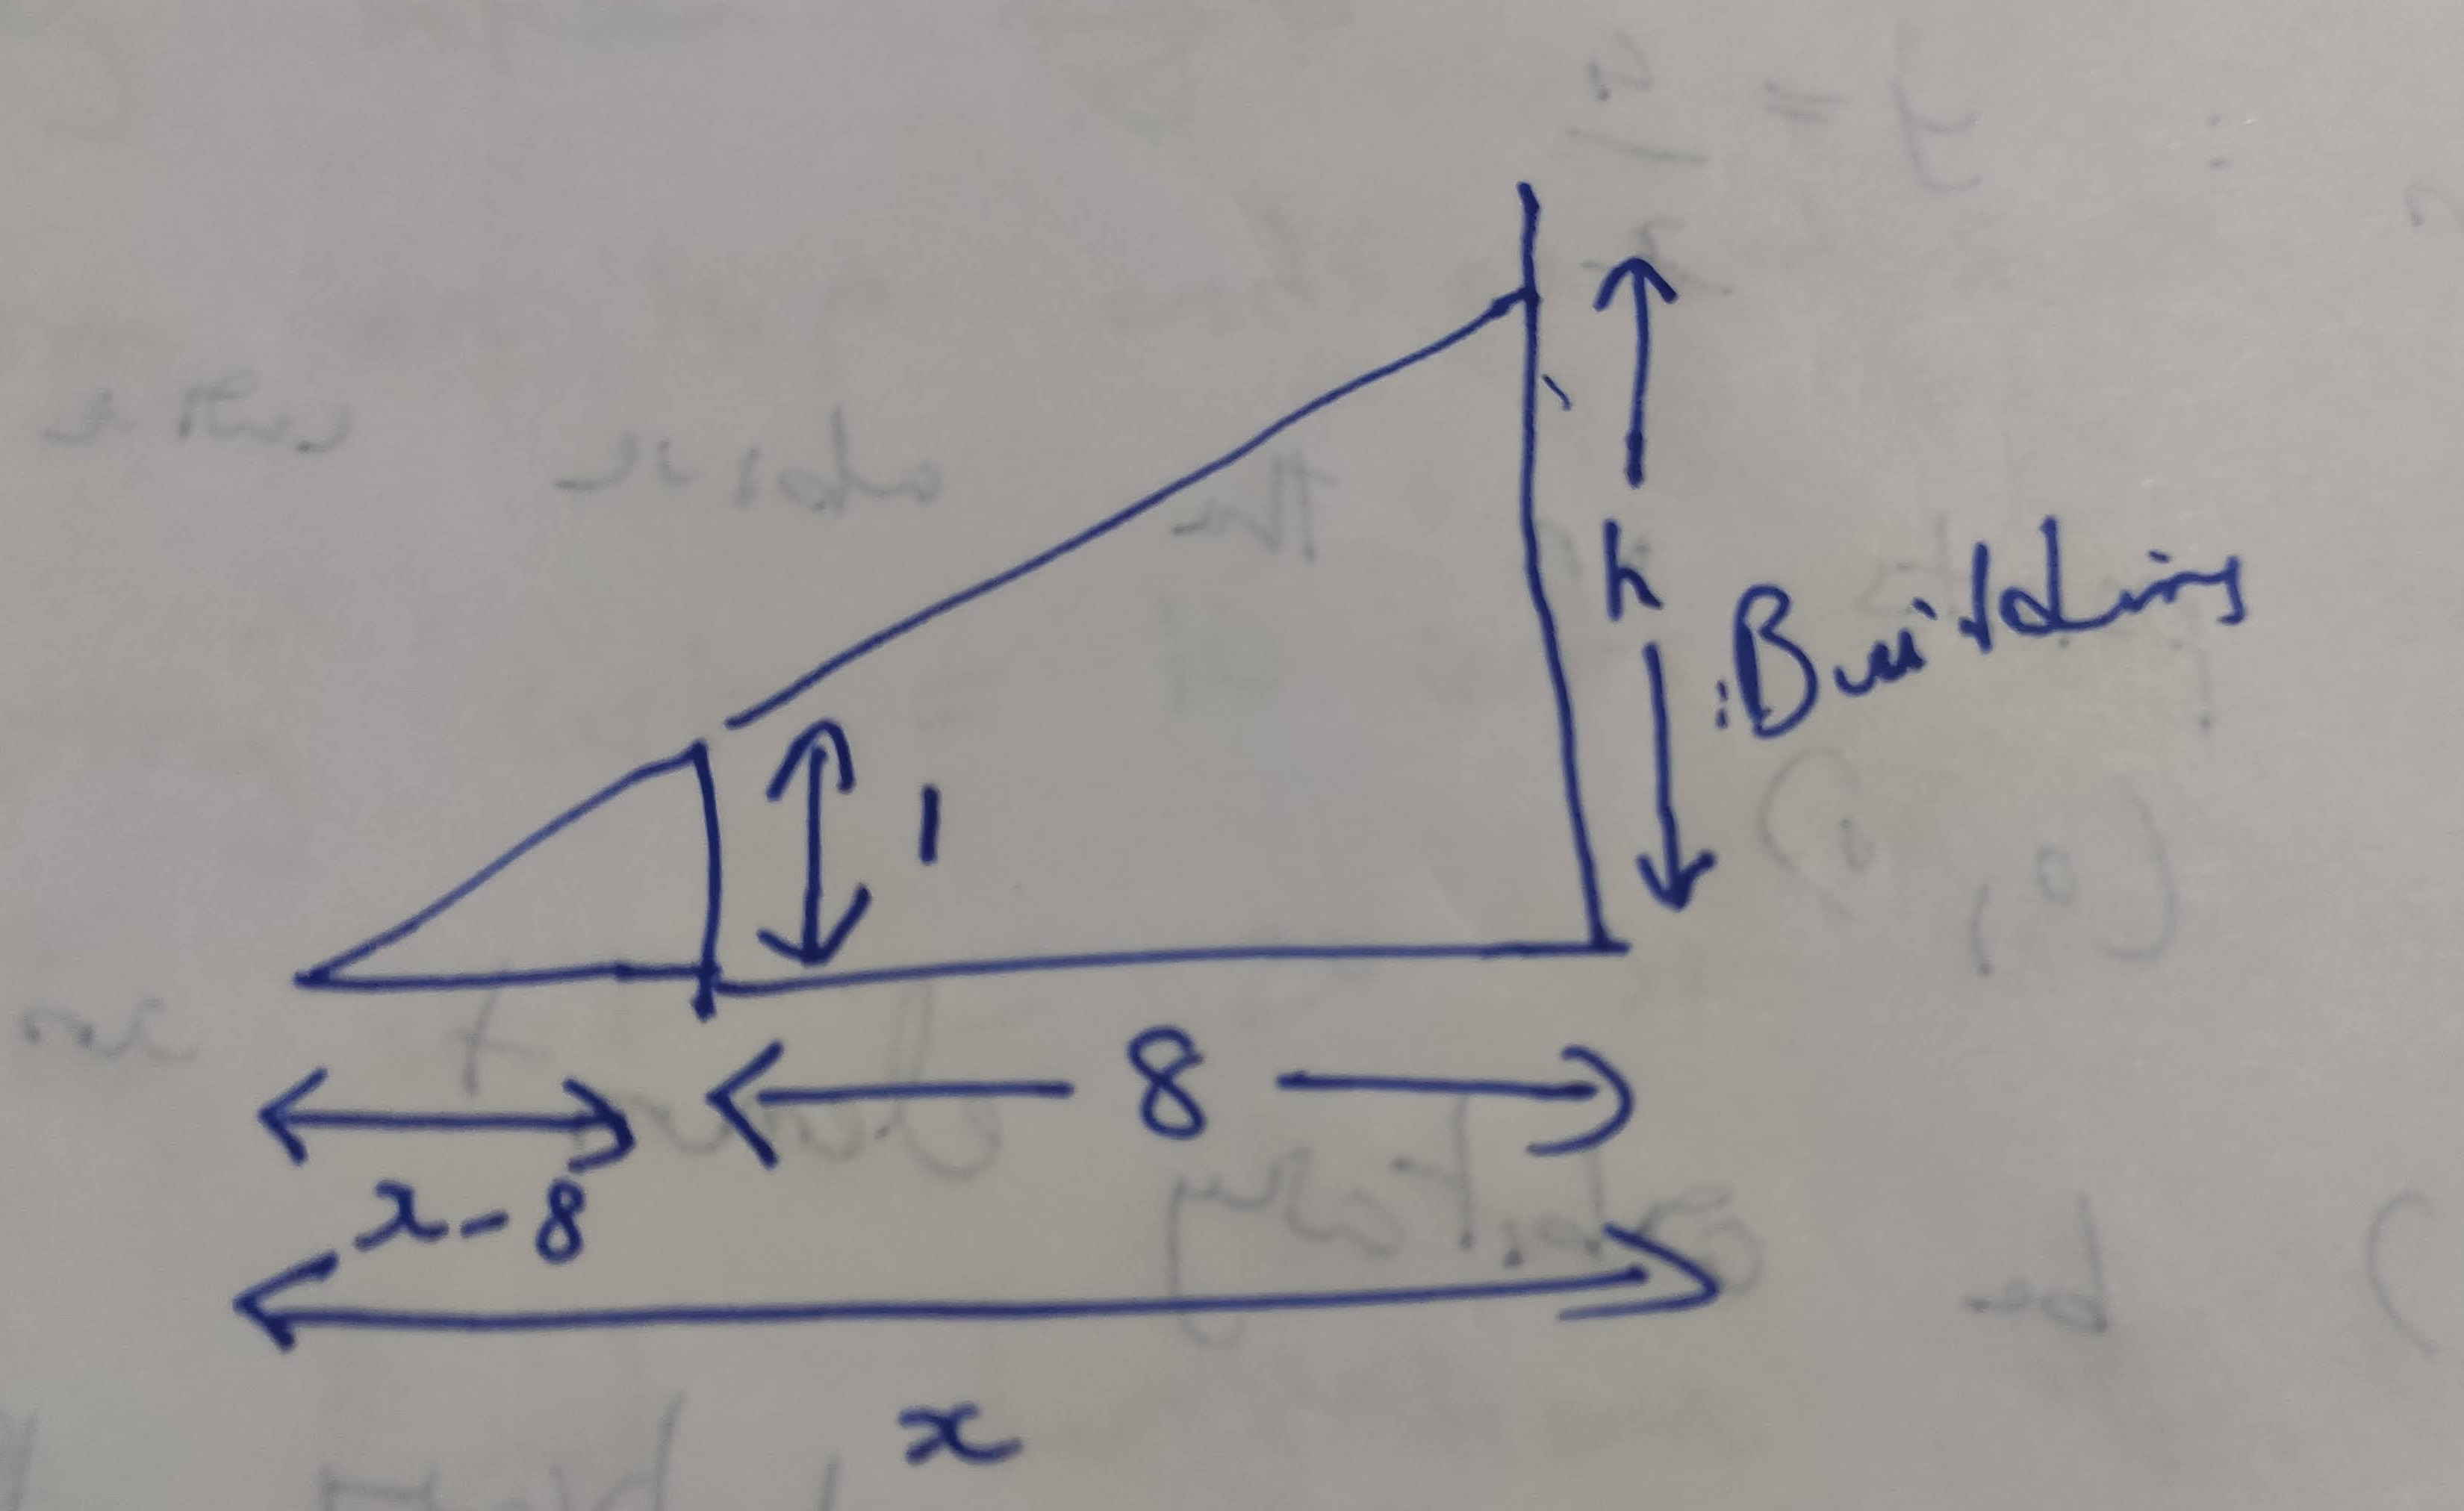 h
Building
1
8
x-8
x